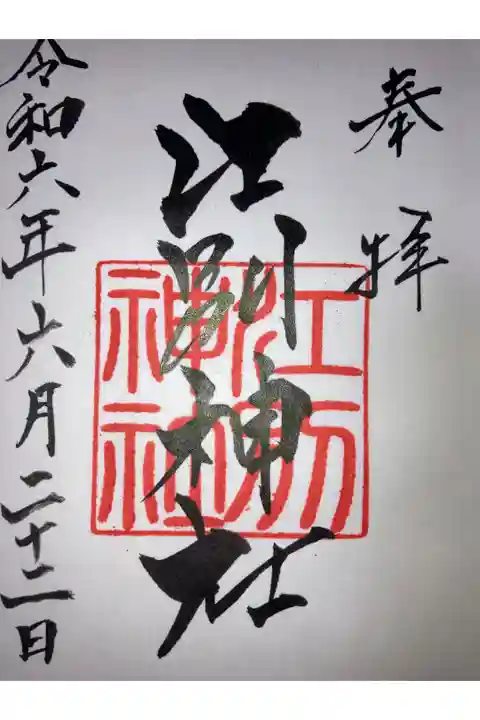 奉拝
江別神社
江別神社
令和六年六月二十二日